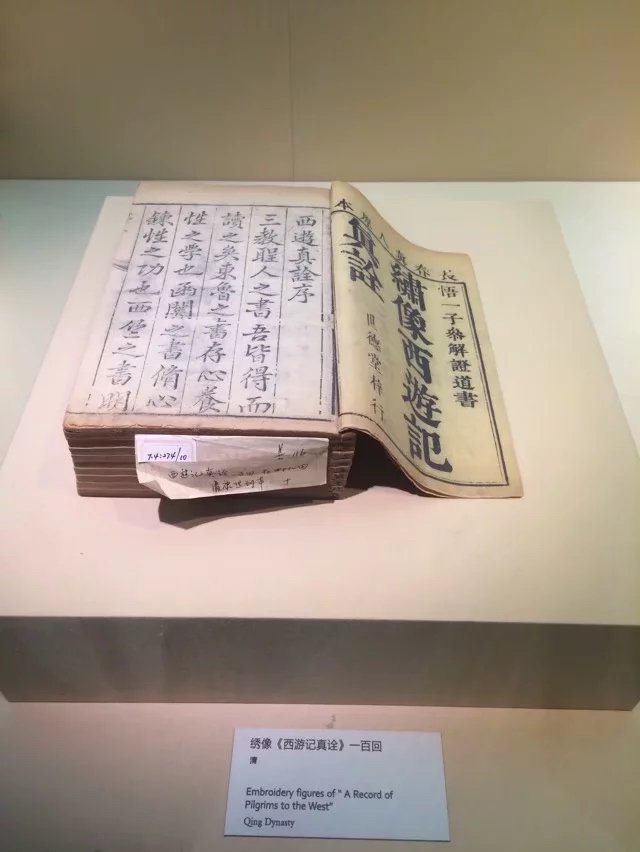 長春真人原本
悟一子參解證道書
繡像西遊記
真詮
世德堂梓行
西遊真詮序
三教聖人之書吾皆得而
讀之矣東魯之書存心養
性之學也函關之書脩心
鍊性之功也西竺之書明
绣像《西游记真诠》一百回
清
Embroidery figures of " A Record of
Pilgrims to the West"
Qing Dynasty